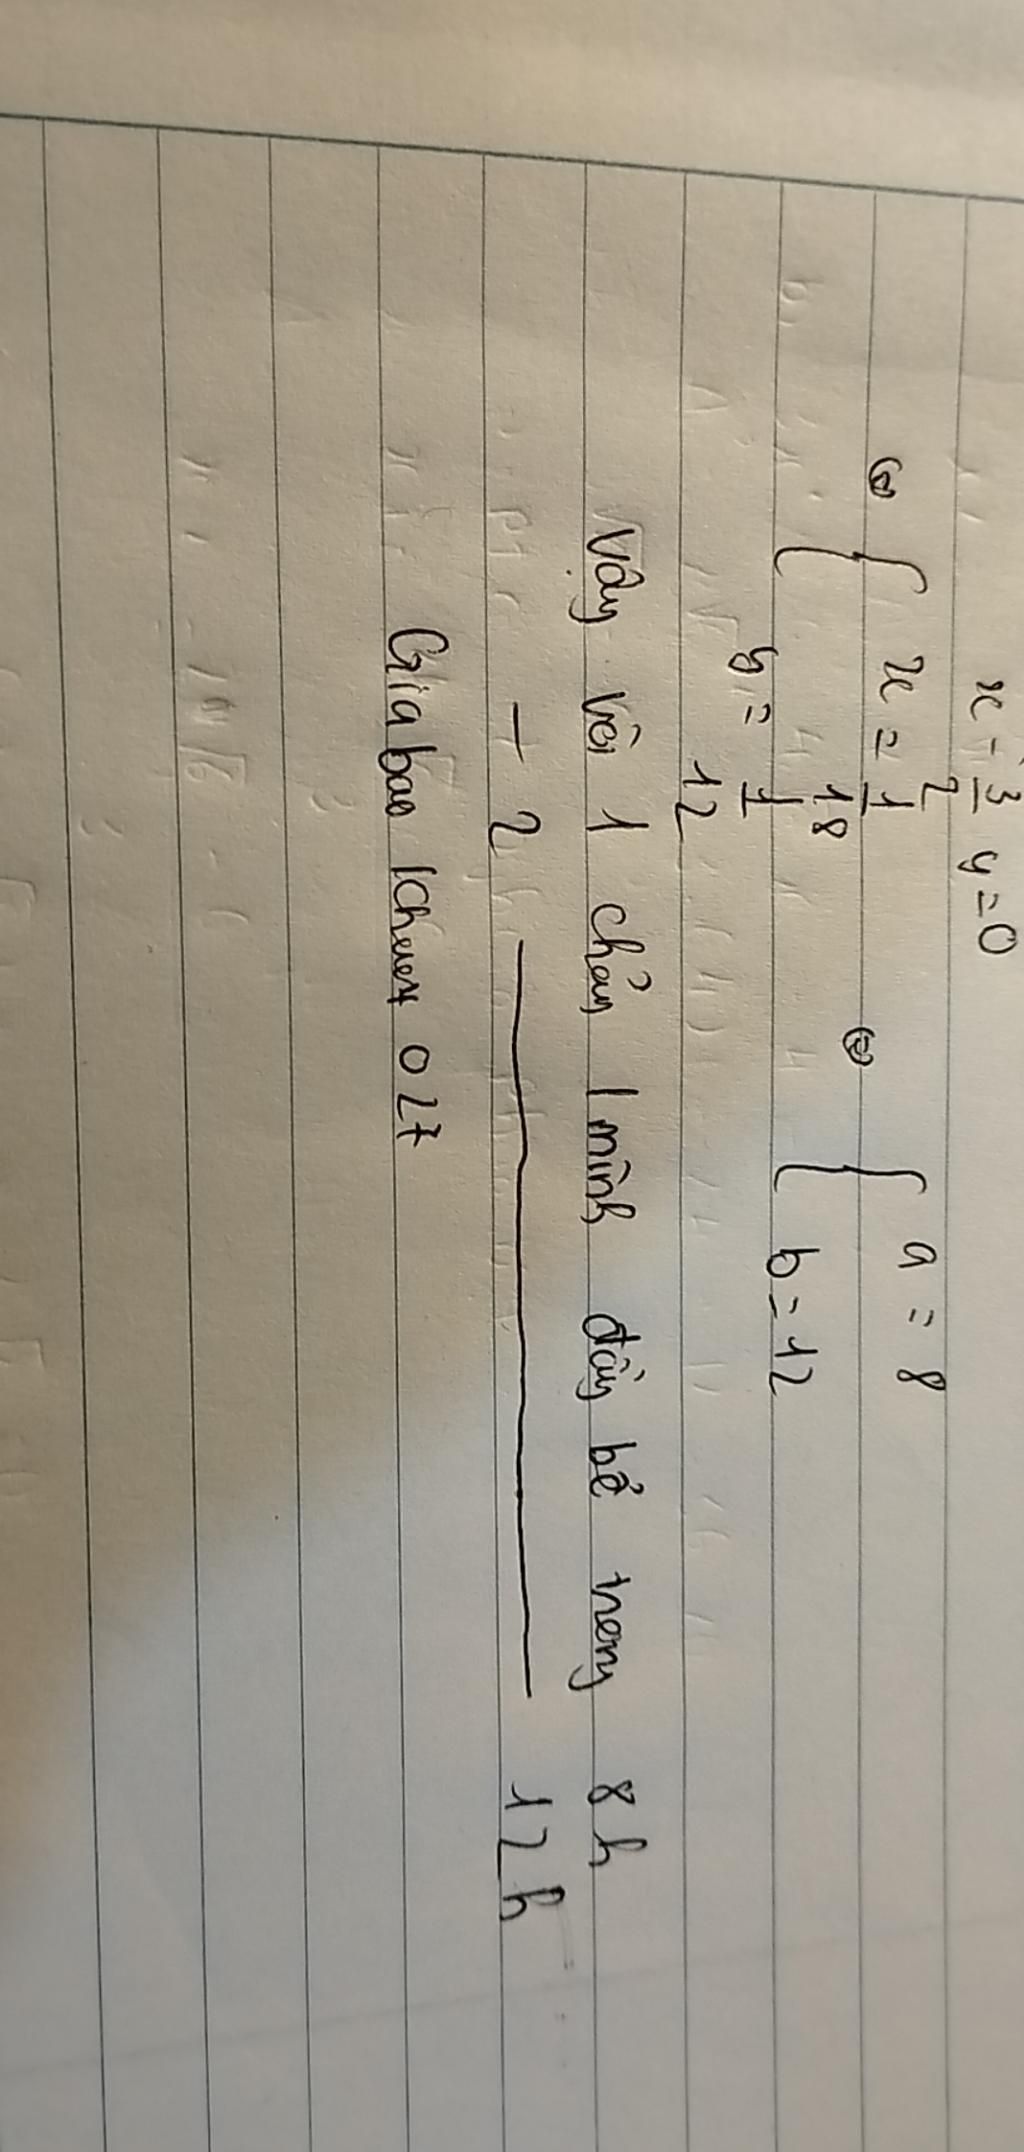 x - 3/2 y = 0
⇔ { x = 1/18 ⇔ { a = 8
y = 1/12 b = 12
Vậy vòi 1 chảy 1 mình đầy bể trong 8h
- 2 ——— 12h
Giabao 027